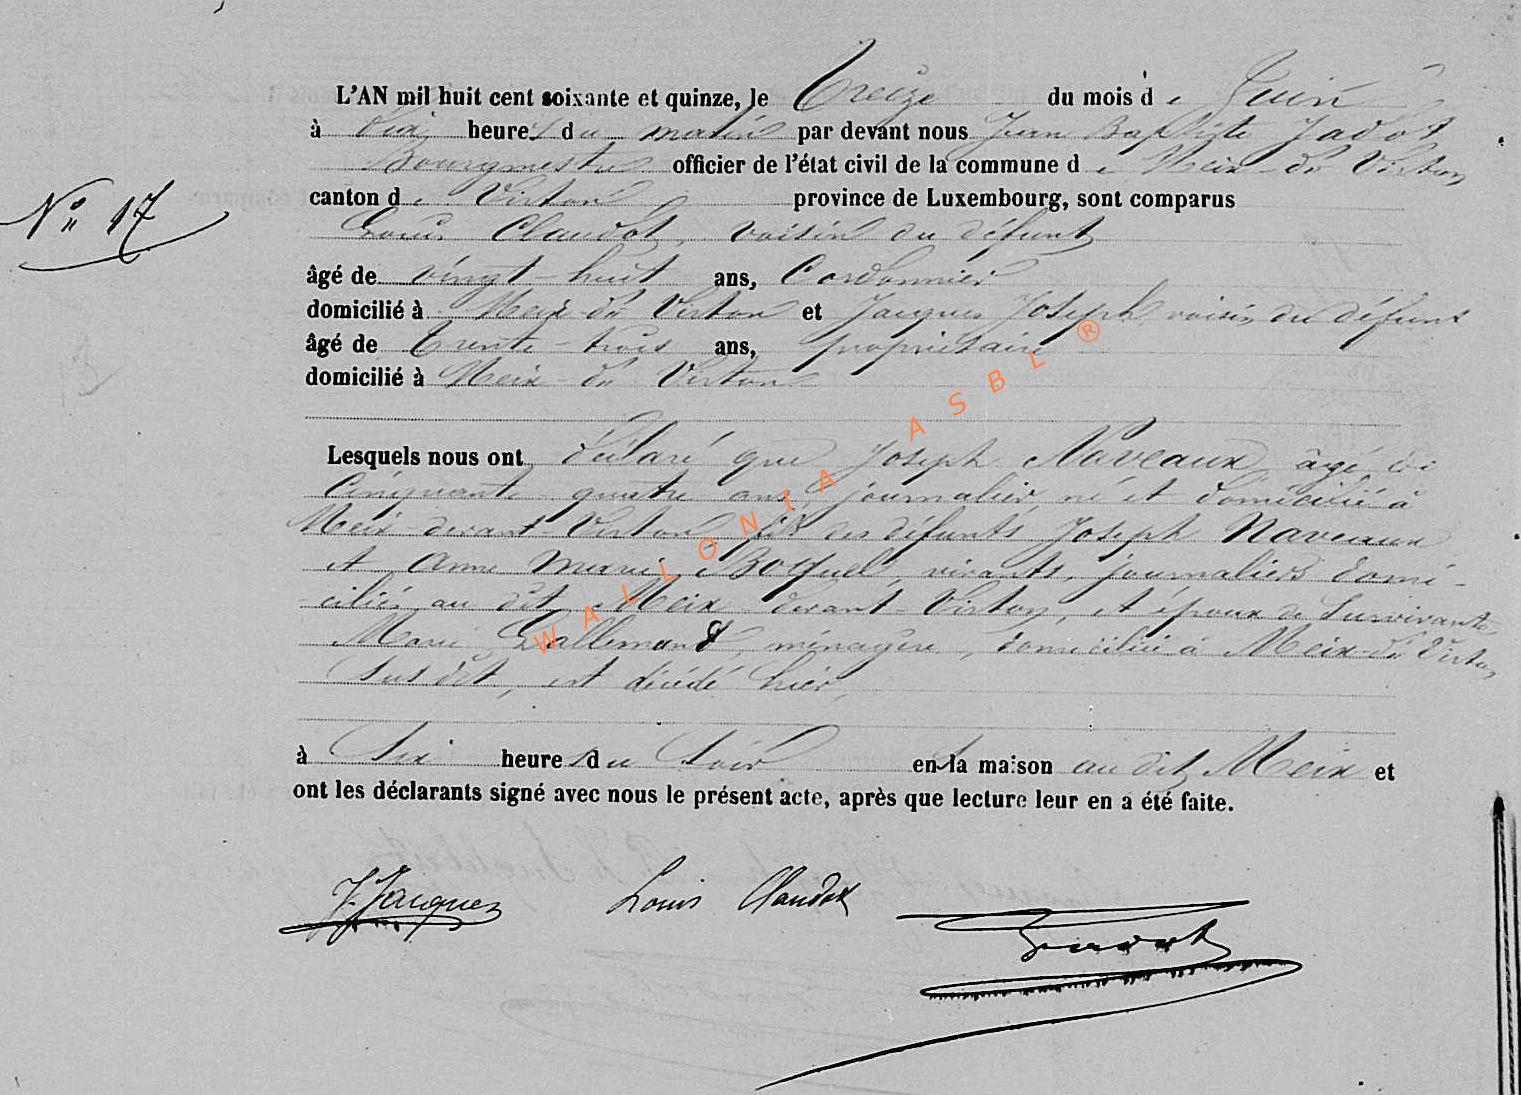 L'AN mil huit cent soixante et quinze, le Treize du mois de Juin
à dix heures du matin par devant nous Jean Baptiste Jadot
Bourgmestre officier de l'état civil de la commune de Meix-dt Virton
canton de Virton province de Luxembourg, sont comparus
N° 17
Louis Claudot, voisin du défunt
âgé de vingt-huit ans, Cordonnier
domicilié à Meix-dt Virton et Jacques Joseph voisin du défunt
âgé de trente-trois ans, propriétaire
domicilié à Meix-dt Virton
Lesquels nous ont déclaré que Joseph Naveaux, âgé de
Cinquante quatre ans, journalier, né et domicilié à
Meix-devant Virton, fils des défunts Joseph Naveaux
et Anne Marie Boquel, vivants, journaliers domi-
ciliés au dit Meix-devant-Virton, et époux de Survivante
Marie Lallemand, ménagère, domiciliée à Meix-dt Virton
Susdit, est décédé hier,
à Six heures du Soir en sa maison au dit Meix et
ont les déclarants signé avec nous le présent acte, après que lecture leur en a été faite.
J. Jacques Louis Claudot Jadot
WALLONIA ASBL ®